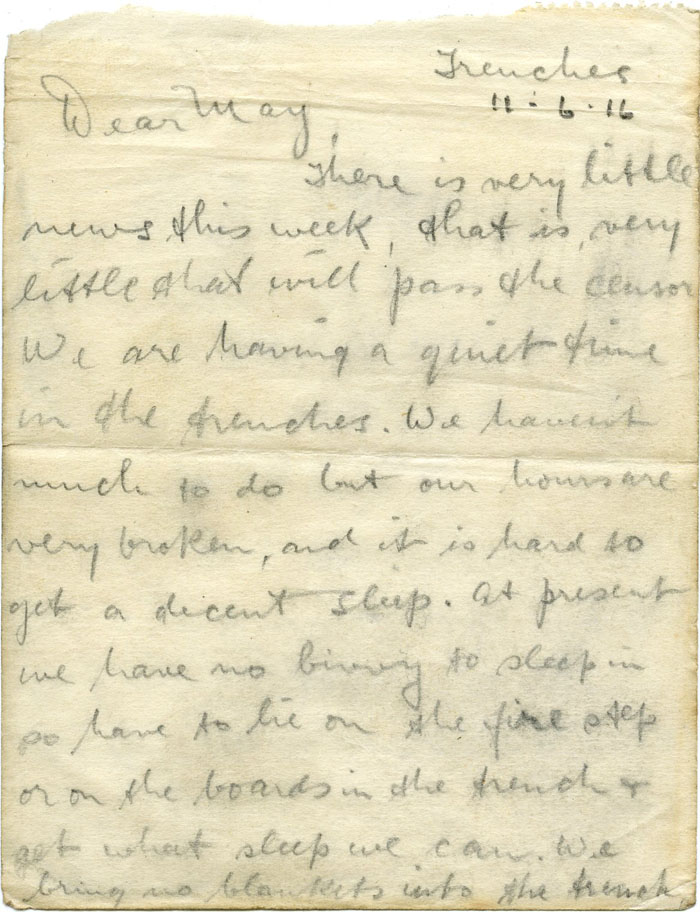 Trenches
11-6-16
Dear May,
There is very little
news this week, that is, very
little that will pass the censor
We are having a quiet time
in the trenches. We haven't
much to do but our hours are
very broken, and it is hard to
get a decent sleep. At present
we have no bivvy to sleep in
so have to lie on the fire step
or on the boards in the trench &
get what sleep we can. We
bring no blankets into the trench